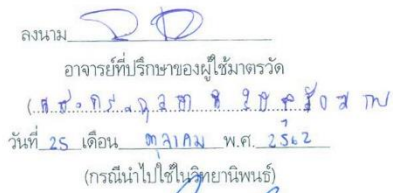 ลงนาม
อาจารย์ที่ปรึกษาของผู้ใช้มาตรวัด
วันที่ 25 เดือน ตุลาคม พ.ศ. 2562
(กรณีนำไปใช้ในวิทยานิพนธ์)